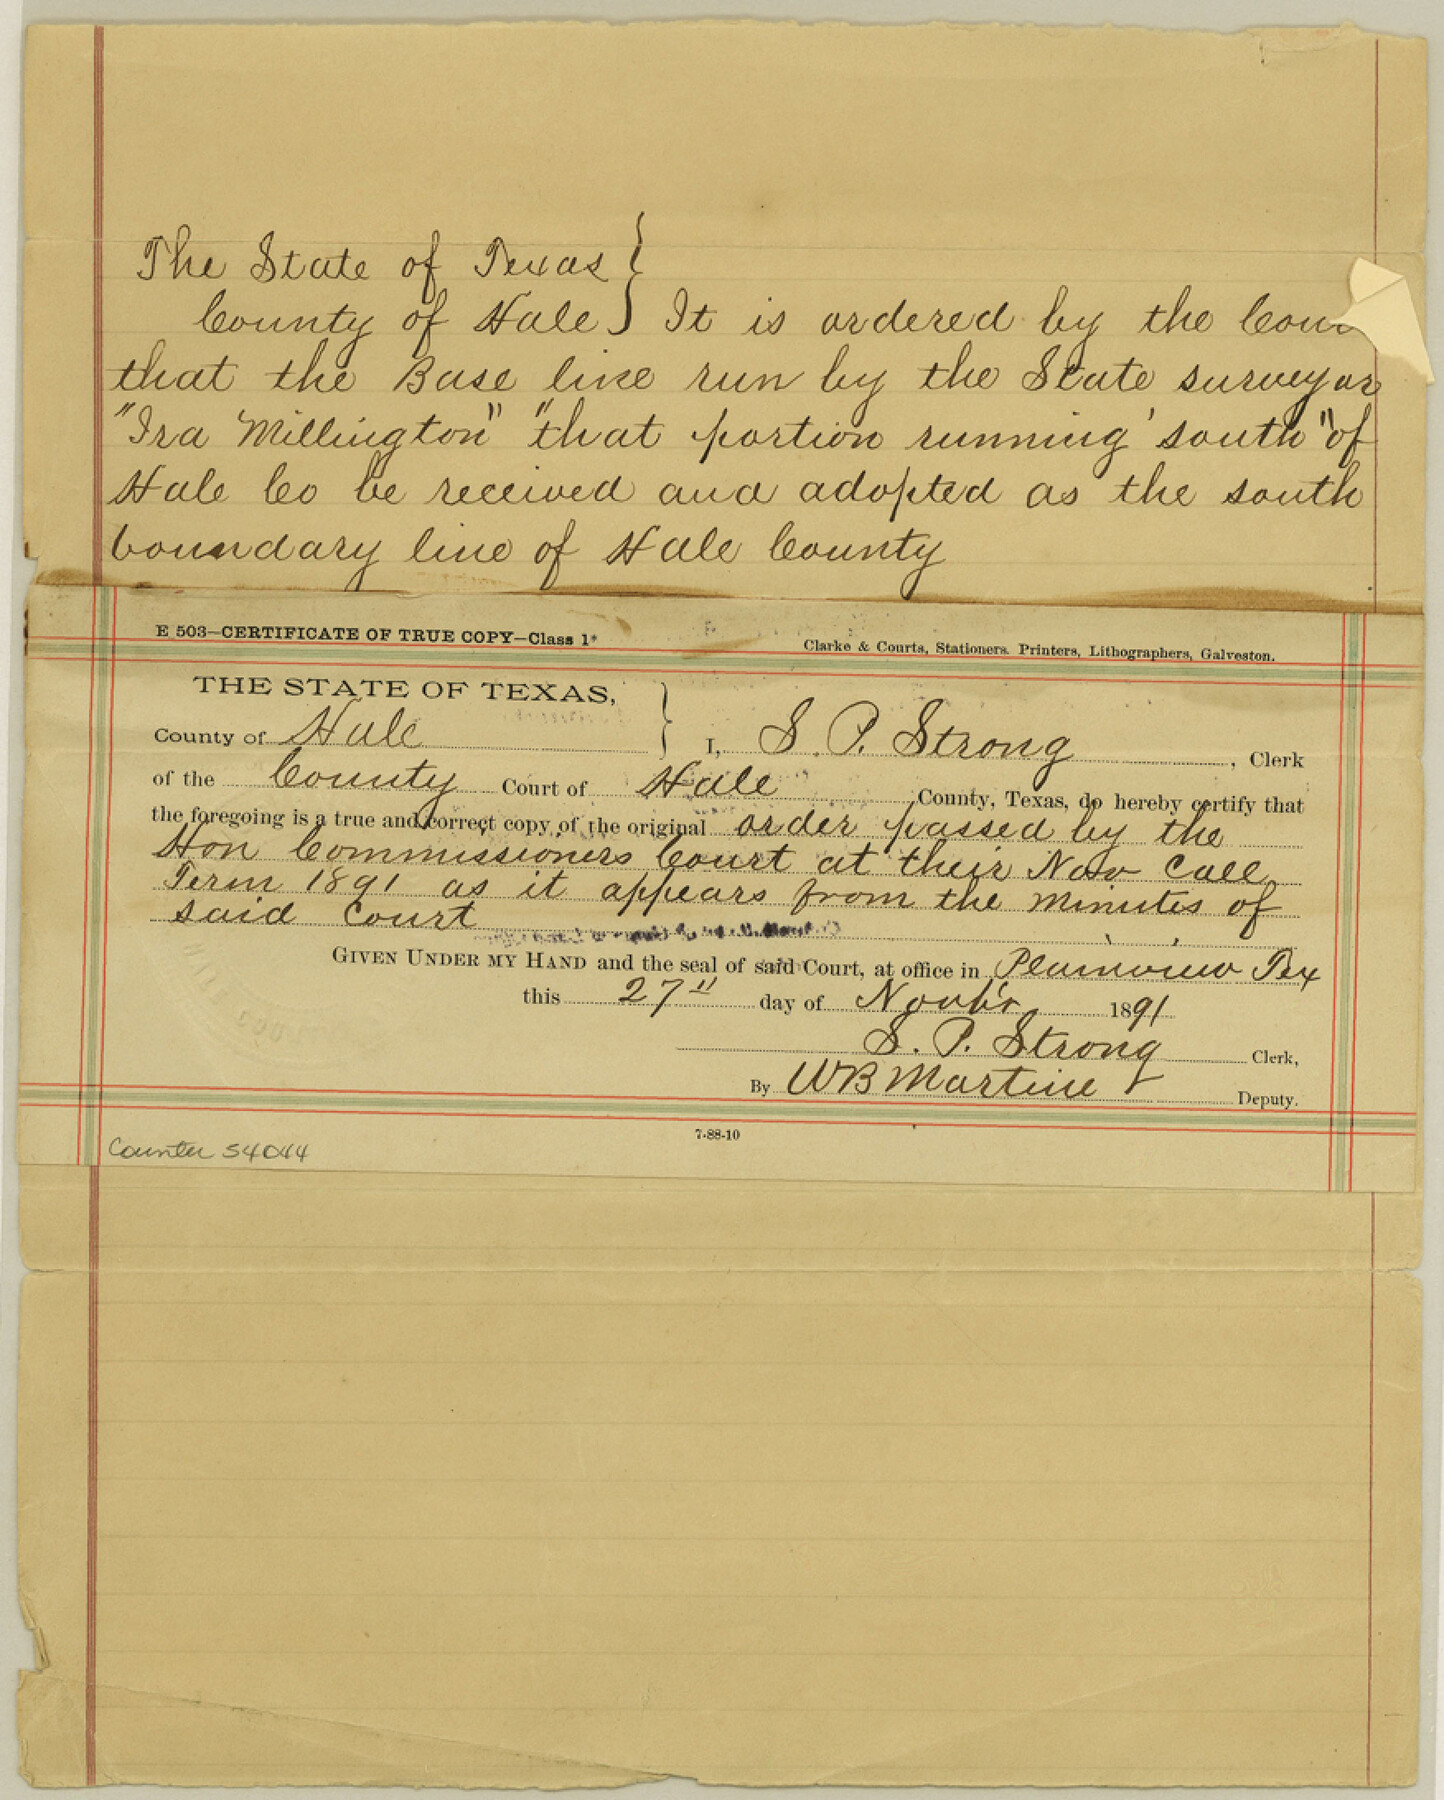 The State of Texas }
County of Hale } It is ordered by the
that the Base line run by the State surveyor
"Ira Millington" "that portion running south" of
Hale Co be received and adopted as the south
boundary line of Hale County
E 503—CERTIFICATE OF TRUE COPY—Class 1*
Clarke & Courts, Stationers. Printers, Lithographers, Galveston.
THE STATE OF TEXAS, }
County of Hale } I, S. P. Strong, Clerk
of the County Court of Hale County, Texas, do hereby certify that
the foregoing is a true and correct copy of the original order passed by the
Hon Commissioners Court at their Nov Call
Term 1891 as it appears from the minutes of
said Court
GIVEN UNDER MY HAND and the seal of said Court, at office in Plainview Tex
this 27" day of Novbr 1891
S. P. Strong Clerk,
By WB Martine Deputy.
7-88-10
Counter 54044